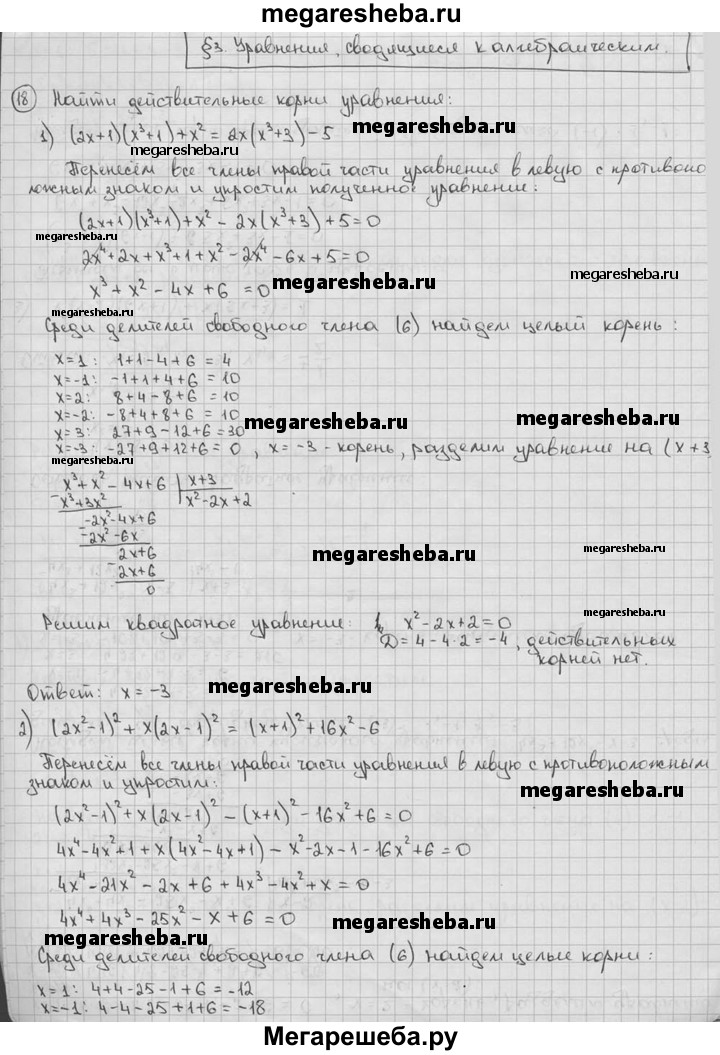 megaresheba.ru
§3. Уравнения, сводящиеся к алгебраическим.
18 Найти действительные корни уравнения:
1) (2x+1)(x³+1)+x² = 2x(x³+3)-5 megaresheba.ru
megaresheba.ru
Перенесём все члены правой части уравнения в левую с противопо
ложным знаком и упростим полученное уравнение:
(2x+1)(x³+1)+x² - 2x(x³+3)+5=0
megaresheba.ru
2x⁴+2x+x³+1+x²-2x⁴-6x+5=0
megaresheba.ru
x³+x²-4x+6=0 megaresheba.ru
megaresheba.ru
Среди делителей свободного члена (6) найдем целый корень:
x=1: 1+1-4+6=4
x=-1: -1+1+4+6=10
x=2: 8+4-8+6=10
x=-2: -8+4+8+6=10 megaresheba.ru megaresheba.ru
x=3: 27+9-12+6=30
x=-3: -27+9+12+6=0, x=-3 - корень, разделим уравнение на (x+3
megaresheba.ru
x³+x²-4x+6 | x+3
x³+3x² x²-2x+2
-2x²-4x+6
-2x²-6x
2x+6 megaresheba.ru
2x+6
0
megaresheba.ru
Решим квадратное уравнение: x²-2x+2=0
D=4-4·2=-4, действительных
корней нет.
Ответ: x=-3 megaresheba.ru
2) (2x²-1)²+x(2x-1)²=(x+1)²+16x²-6
Перенесём все члены правой части уравнения в левую с противоположным
знаком и упростим: megaresheba.ru
(2x²-1)²+x(2x-1)²-(x+1)²-16x²+6=0
4x⁴-4x²+1+x(4x²-4x+1)-x²-2x-1-16x²+6=0
4x⁴-21x²-2x+6+4x³-4x²+x=0
4x⁴+4x³-25x²-x+6=0 megaresheba.ru
megaresheba.ru
Среди делителей свободного члена (6) найдем целые корни:
x=1: 4+4-25-1+6=-12
x=-1: 4-4-25+1+6=-18
megaresheba.ru
Мегарешеба.ру